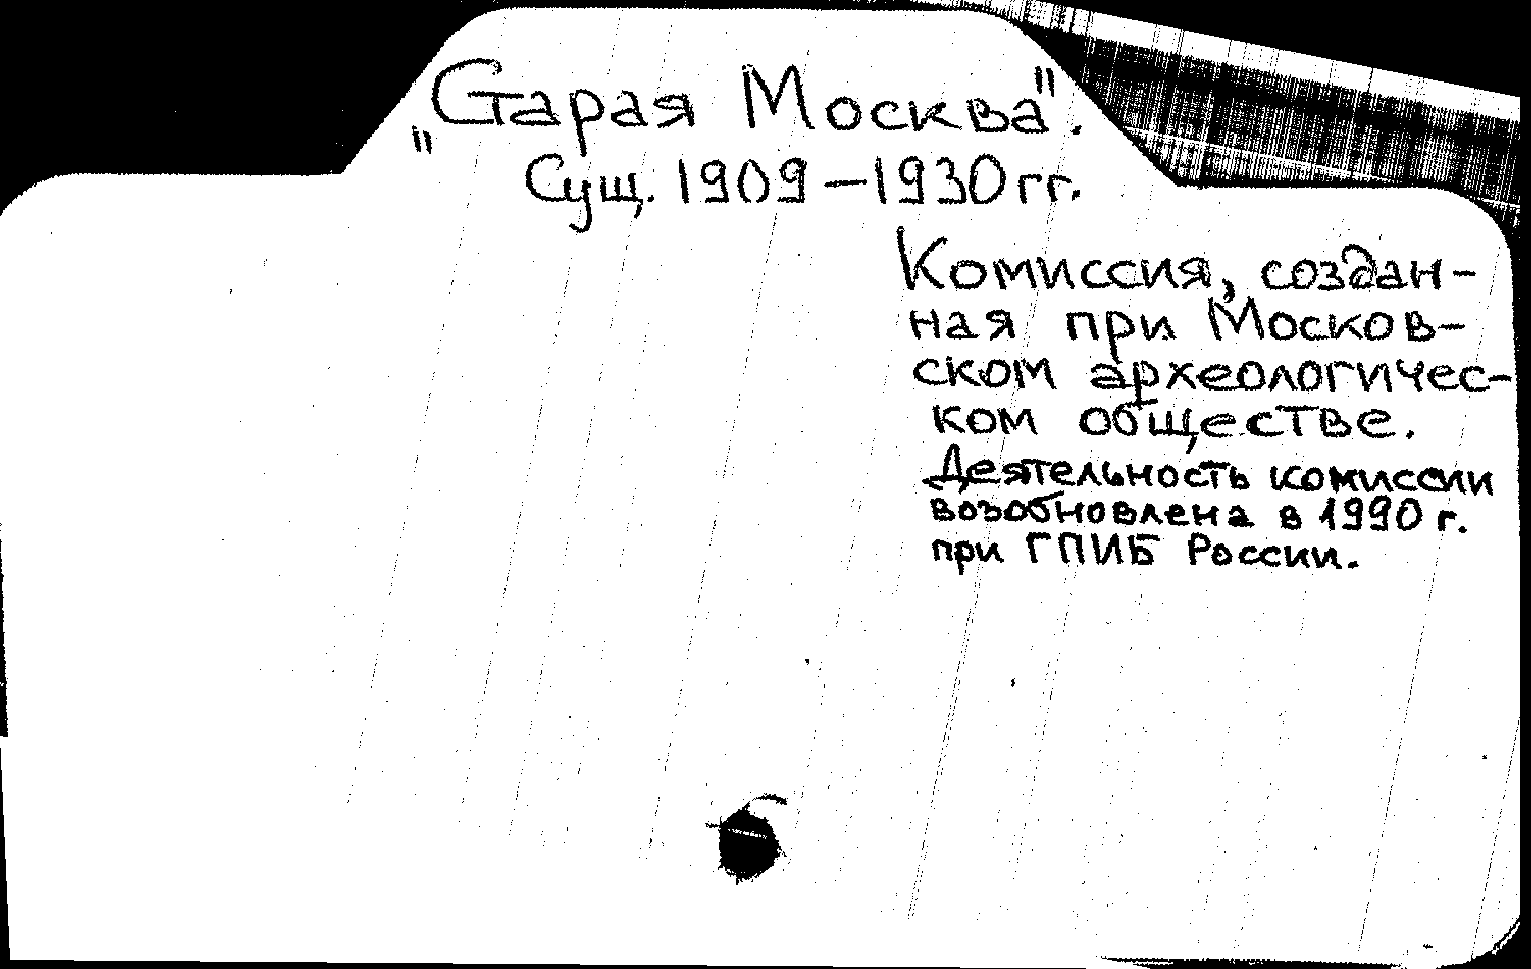 "Старая Москва".
Сущ. 1909–1930 гг.
Комиссия, создан-
ная при Москов-
ском археологичес-
ком обществе.
Деятельность комиссии
возобновлена в 1990 г.
при ГПИБ России.